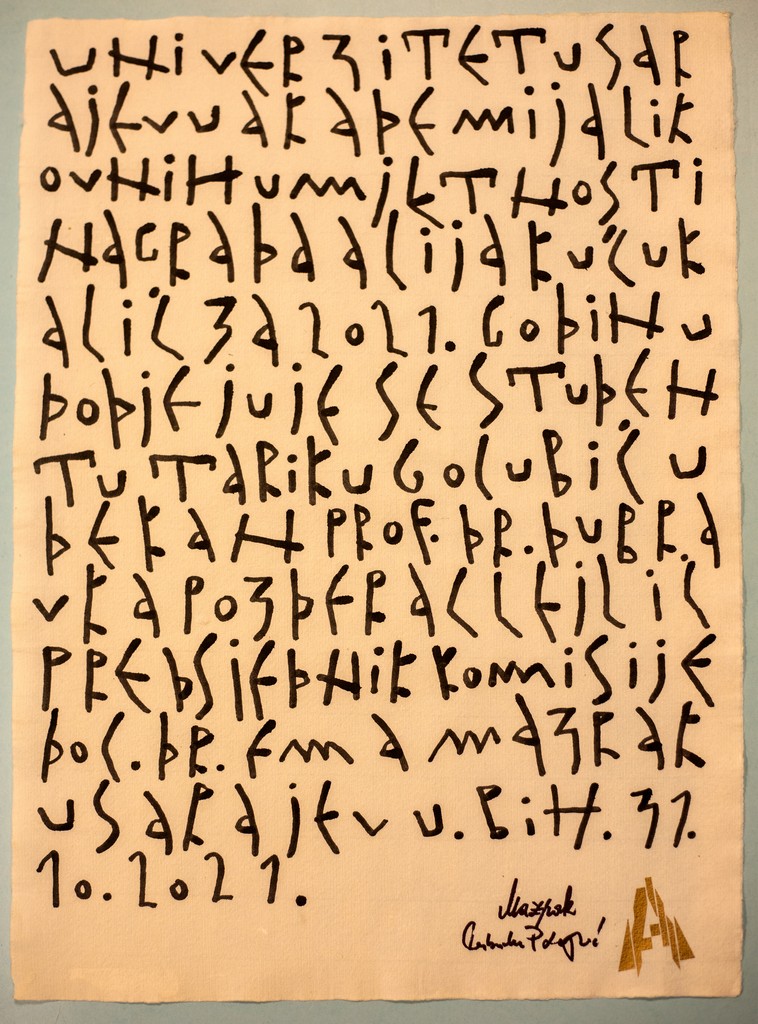 UNIVERZITET U SAR
AJEVU AKADEMIJA LIK
OVNIH UMJETNOSTI
NAGRADA ALIJA KUČUK
ALIĆ ZA 2021. GODINU
DODJEJUJE SE STUDEN
TU TARIKU GOLUBIĆU
DEKAN PROF. DR. DUBRA
VKA POZDERAC LEJLIĆ
PREDSJEDNIK KOMISIJE
DOC. DR. EMA MAZRAK
U SARAJEVU. BIH. 31.
10. 2021.
Mazrak